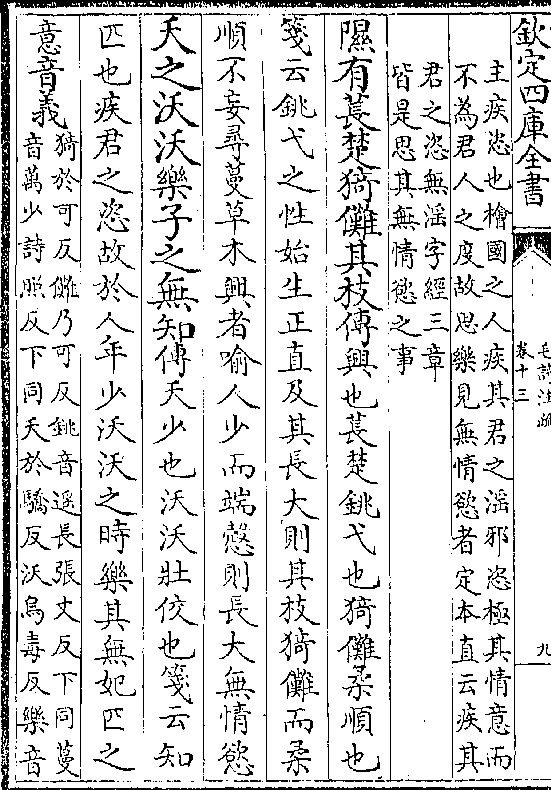 欽定四庫全書
毛詩注疏
卷十三
九
主疾恣也檜國之人疾其君之滛邪恣極其情意而
不為君人之度故思樂見無情慾者定本直云疾其
君之恣無滛字經三章
皆是思其無情慾之事
隰有萇楚猗儺其枝傳興也萇楚銚弋也猗儺柔順也
箋云銚弋之性始生正直及其長大則其枝猗儺而柔
順不妄尋蔓草木興者喻人少而端慤則長大無情慾
夭之沃沃樂子之無知傳夭少也沃沃壯佼也箋云知
匹也疾君之恣故於人年少沃沃之時樂其無妃匹之
意音義猗於可反儺乃可反銚音遥長張丈反下同蔓
音萬少詩照反下同夭於驕反沃烏毒反樂音